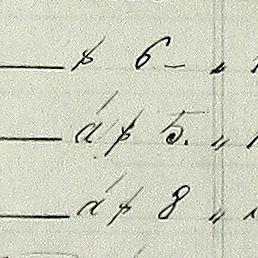 — ₰ 6 – „
— á ₰ 5. „
— á ₰ 8 „